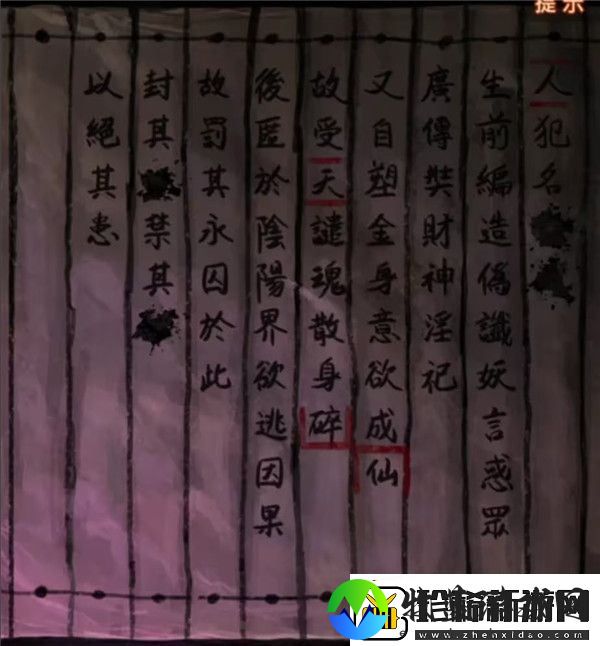 提示
人犯名
生前編造偽讖妖言惑眾
廣傳奘財神淫祀
又自塑金身意欲成仙
故受天譴魂散身碎
後匿於陰陽界欲逃因果
故罰其永囚於此
封其禁其
以絕其患
www.zhenxidao.com